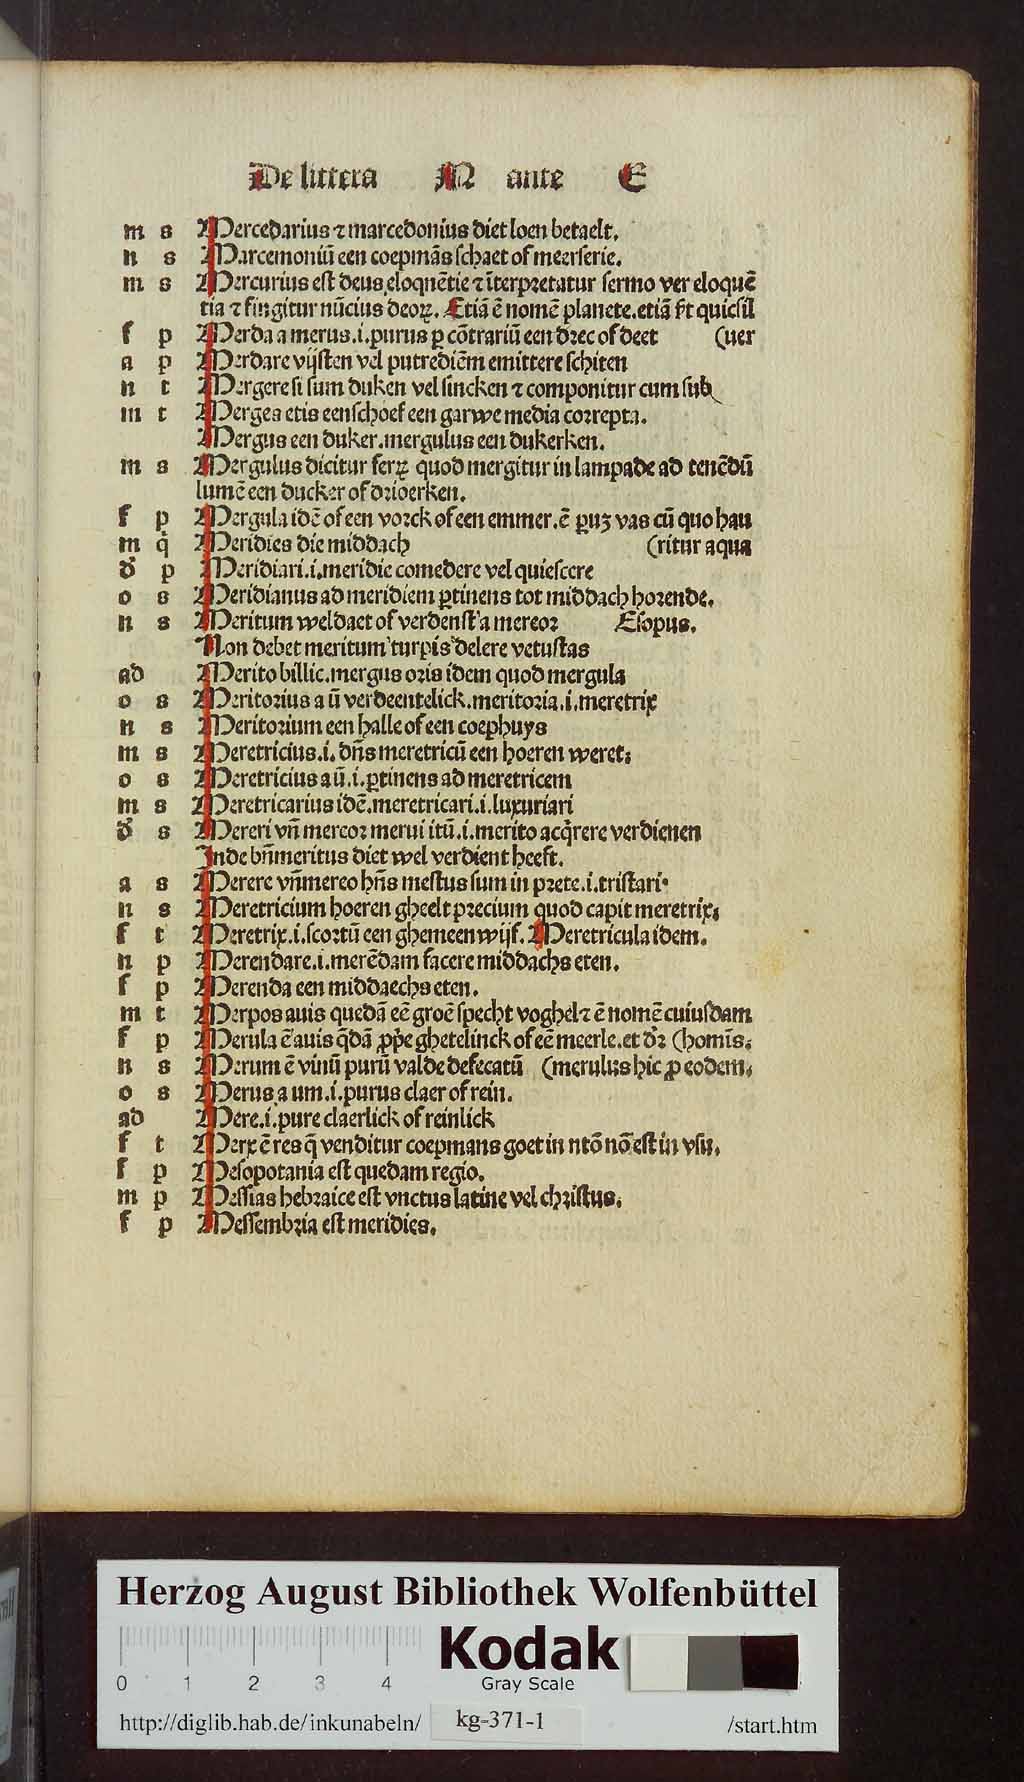 De littera M ante E
m s Mercedarius ⁊ marcedonius diet loen betaelt.
n s Marcemoniū een coepmās schaet of meerserie.
m s Mercurius est deus eloquētie ⁊ īterpretatur sermo ver eloquē
tia ⁊ fingitur nūcius deoꝝ. Etiā ē nomē planete. etiā
f p Merda a merus .i. purus ꝑ cōtrariū een drec of deet (uer
a p Merdare vijsten vel putrediēm emittere schiten
n t Mergere si sum duken vel sincken ⁊ componitur cum sub
m t Merges etis een schoef een garwe media correpta.
Mergus een duker. mergulus een dukerken.
m s Mergulus dicitur ferꝝ quod mergitur in lampade ad tenēdū
lumē een ducker of drioerken.
f p Mergula idē of een vorck of een emmer. ē ꝑuꝫ vas cū quo hau
m q̇ Meridies die middach (ritur aqua
d̓ p Meridiari .i. meridie comedere vel quiescere
o s Meridianus ad meridiem ꝑtinens tot middach horende.
n s Meritum weldaet of verdenst a mereor Esopus.
Non debet meritum turpis delere vetustas
ad Merito billic. mergus oris idem quod mergula
o s Meritorius a ū verdeentelick. meritoria .i. meretrix
n s Meritorium een halle of een coephuys
m s Meretricius .i. dn̄s meretricū een hoeren weret;
o s Meretricius a ū .i. ꝑtinens ad meretricem
m s Meretricarius idē. meretricari .i. luxuriari
d̓ s Mereri vn̄ mereor merui itū .i. merito acq̇rere verdienen
Inde bn̄meritus diet wel verdient heeft.
a s Merere vn̄ mereo hn̄s mestus sum in prete .i. tristari.
n s Meretricium hoeren gheelt precium quod capit meretrix;
f t Meretrix .i. scortū een ghemeen wijf. Meretricula idem.
n p Merendare .i. merēdam facere middachs eten.
f p Merenda een middaechs eten.
m t Merpos auis quedā eē groē specht voghel ⁊ ē nomē cuiusdam
f p Merula ē auis q̄dā ꝓp̄e ghetelinck of eē meerle. et dr̄ (homīs;
n s Merum ē vinū purū valde defecatū (merulus hic ꝓ eodem;
o s Merus a um .i. purus claer of rein.
ad Mere .i. pure claerlick of reinlick
f t Merx ē res q̄ venditur coepmans goet in ntō nō est in vsu.
f p Mesopotania est quedam regio.
m p Messias hebraice est vnctus latine vel christus.
f p Messembria est meridies.
Herzog August Bibliothek Wolfenbüttel
Kodak
0 1 2 3 4 Gray Scale
http://diglib.hab.de/inkunabeln/ kg-371-1 /start.htm